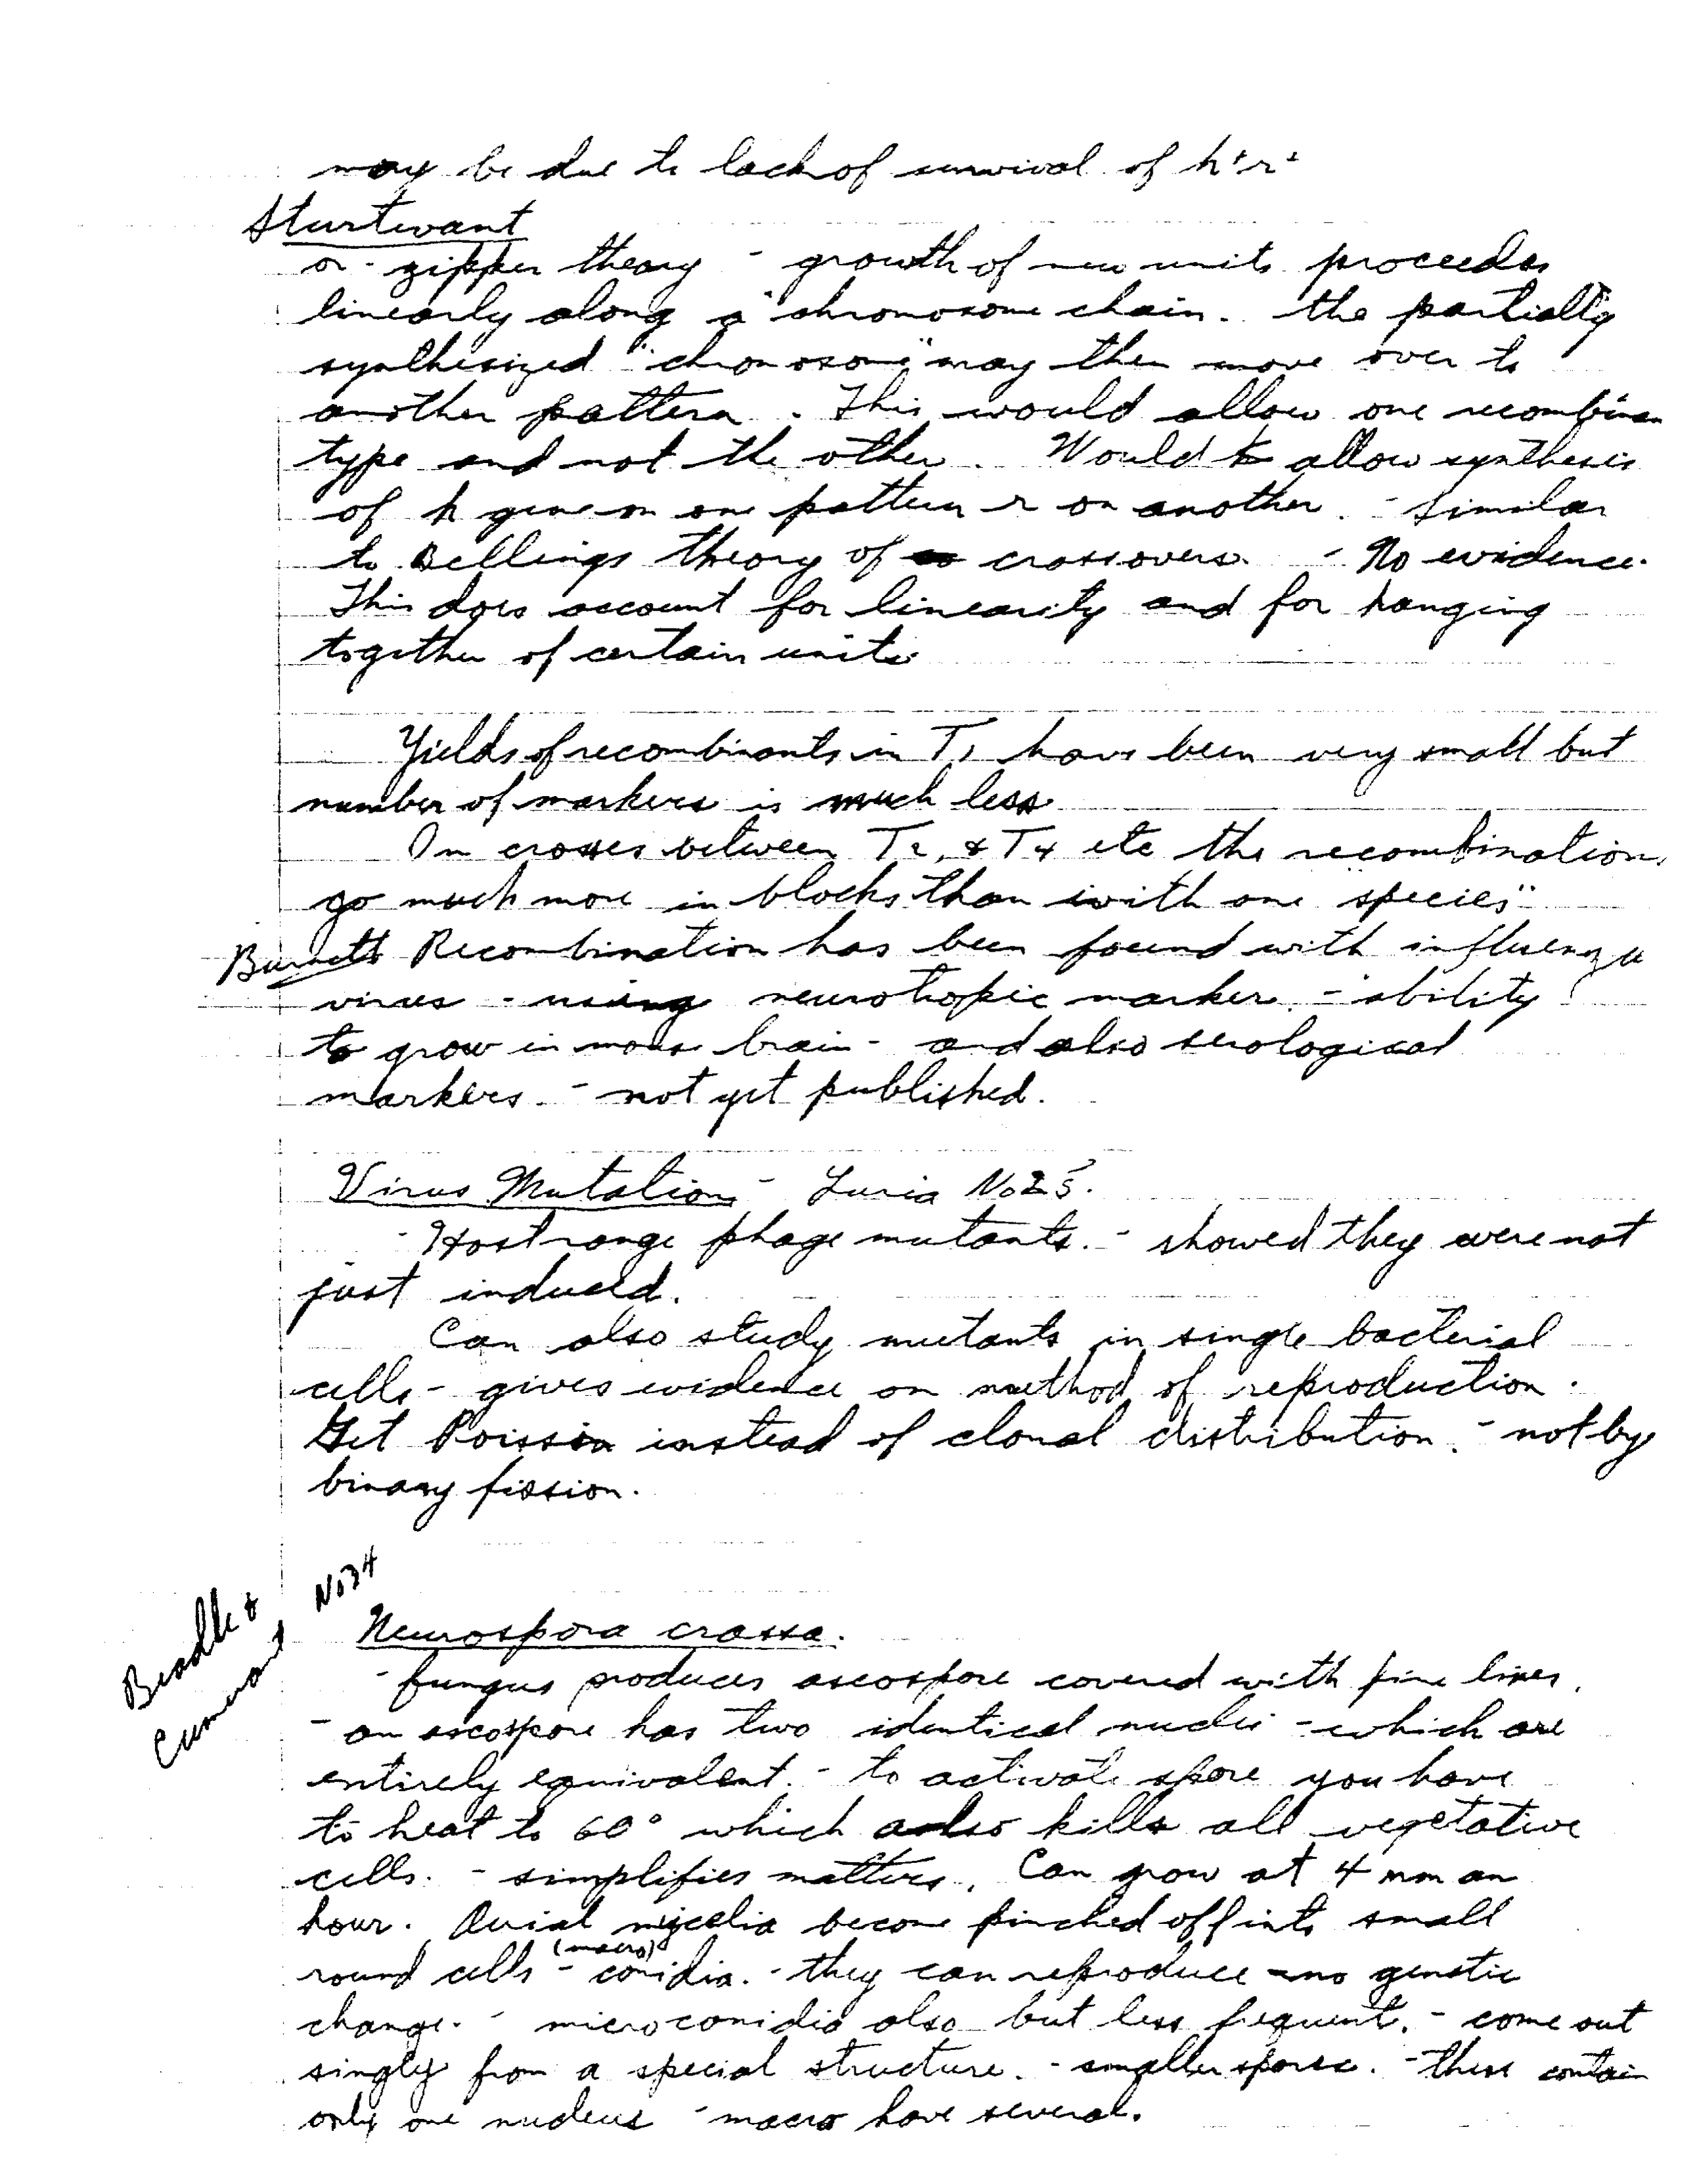 may be due to lack of survival of h⁺r⁺
Sturtevant
or - zipper theory - growth of new units proceeds
linearly along a "chromosome chain. the partially
synthesized "chromosome" may then move over to
another pattern. This would allow one recombinan
type and not the other. Would allow synthesis
of h gene on one pattern r on another. - Similar
to Bellings theory of crossovers. - No evidence.
This does account for linearity and for hanging
together of certain units.
Yields of recombinants in T1 have been very small but
number of markers is much less.
In crosses between T2, & T4 etc the recombinations
go much more in blocks than with one "species"
Burnett Recombination has been found with influenza
virus - using neurotropic marker - ability
to grow in mouse brain - and also serological
markers. - not yet published.
Virus Mutations - Luria No 25.
- Host range phage mutants. - showed they were not
just induced.
Can also study mutants in single bacterial
cells - gives evidence on method of reproduction.
Get Poisson instead of clonal distribution. - not by
binary fission.
Beadle &
No 34
Neurospora crassa.
- fungus produces ascospore covered with fine lines.
- an ascospore has two identical nuclei - which are
entirely equivalent. - to activate spore you have
to heat to 60° which also kills all vegetative
cells. - simplifies matters. Can grow at 4 mm an
hour. Aerial mycelia become pinched off into small
(macro)
round cells - conidia. - they can reproduce - no genetic
change. - microconidia also but less frequent. - come out
singly from a special structure. - smaller spores. - these contain
only one nucleus - macro have several.